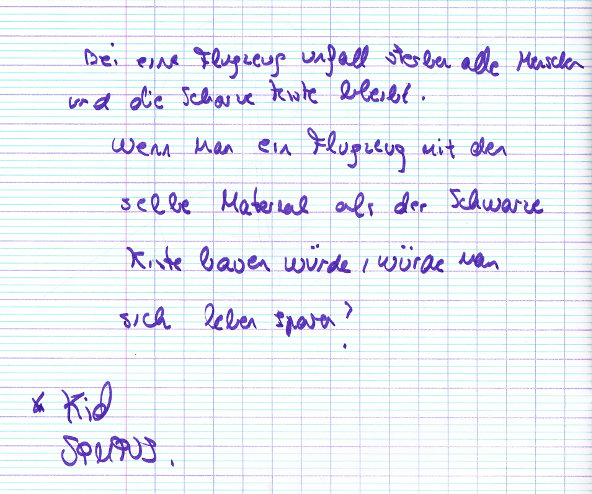 Bei eine Flugzeug unfall sterben alle Menschen
und die Scharze Kiste bleibt.
Wenn Man ein Flugzeug mit den
selbe Material als der Schwarze
Kiste bauen würde, würde man
sich leben sparen?
* Kid